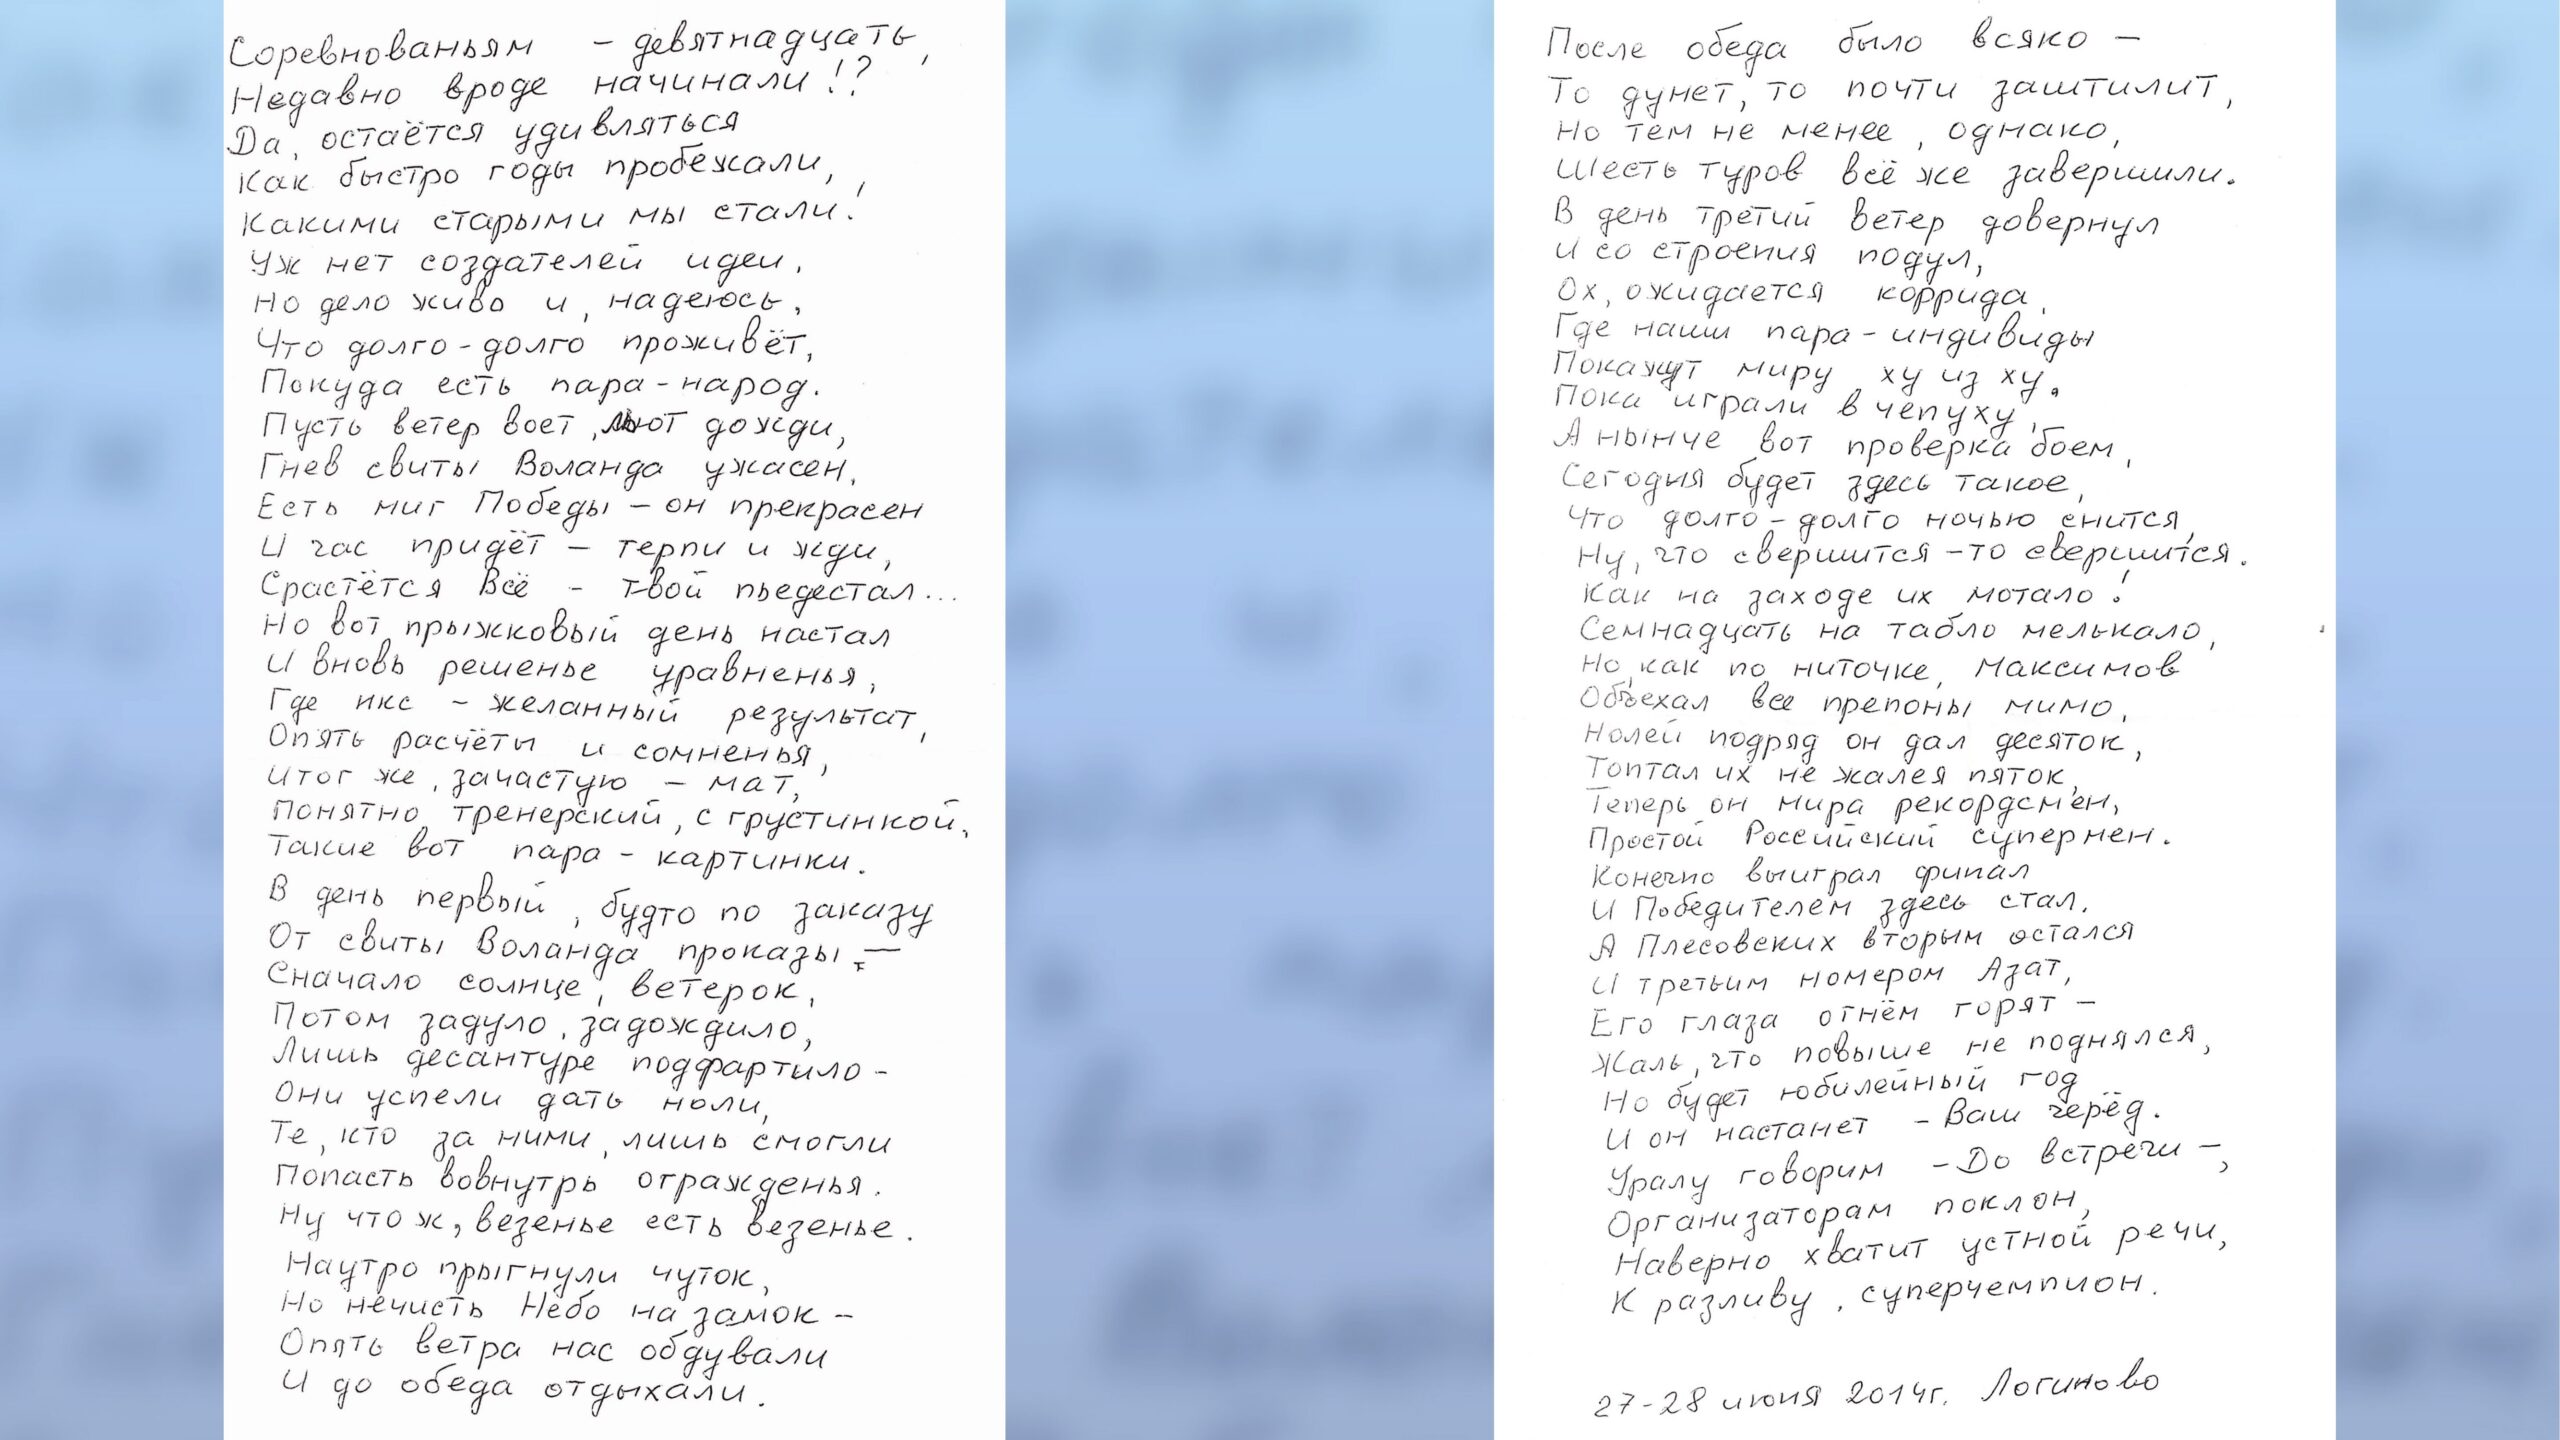 Соревнованьям - девятнадцать,
Недавно вроде начинали!?
Да, остаётся удивляться
Как быстро годы пробежали,
Какими старыми мы стали!
Уж нет создателей идеи,
Но дело живо и, надеюсь,
Что долго-долго проживёт,
Покуда есть пара-народ.
Пусть ветер воет, льют дожди,
Гнев свиты Воланда ужасен,
Есть миг Победы - он прекрасен
И час придёт - терпи и жди,
Срастётся всё - твой пьедестал...
Но вот прыжковый день настал
И вновь решенье уравненья,
Где икс - желанный результат,
Опять расчёты и сомненья,
Итог же, зачастую - мат,
Понятно тренерский, с грустинкой,
Такие вот пара-картинки.
В день первый, будто по заказу
От свиты Воланда проказы -
Сначало солнце, ветерок,
Потом задуло, задождило,
Лишь десантуре подфартило -
Они успели дать ноли,
Те, кто за ними, лишь смогли
Попасть вовнутрь огражденья.
Ну что ж, везенье есть везенье.
Наутро прыгнули чуток,
Но нечисть Небо на замок -
Опять ветра нас обдували
И до обеда отдыхали.
После обеда было всяко -
То дунет, то почти заштилит,
Но тем не менее, однако,
Шесть туров всё же завершили.
В день третий ветер довернул
И со строения подул,
Ох, ожидается коррида,
Где наши пара-индивиды
Покажут миру ху из ху.
Пока играли в чепуху,
А нынче вот проверка боем,
Сегодня будет здесь такое,
Что долго-долго ночью снится,
Ну, что свершится - то свершится.
Как на заходе их мотало!
Семнадцать на табло мелькало,
Но, как по ниточке, Максимов
Объехал все препоны мимо,
Нолей подряд он дал десяток,
Топтал их не жалея пяток,
Теперь он мира рекордсмен,
Простой Российский супермен.
Конечно выиграл финал
И Победителем здесь стал.
А Плесовских вторым остался
И третьим номером Азат,
Его глаза огнём горят -
Жаль, что повыше не поднялся,
Но будет юбилейный год
И он настанет - Ваш черёд.
Уралу говорим - До встречи -,
Организаторам поклон,
Наверно хватит устной речи,
К разливу, суперчемпион.
27-28 июня 2014г. Логиново